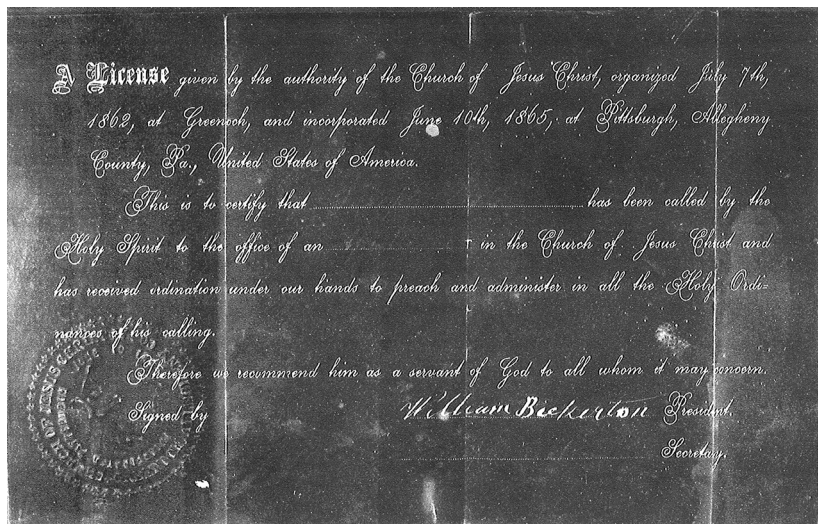 A License given by the authority of the Church of Jesus Christ, organized July 7th,
1862, at Greenoch, and incorporated June 10th, 1865, at Pittsburgh, Allegheny
County, Pa., United States of America.
This is to certify that has been called by the
Holy Spirit to the office of an in the Church of Jesus Christ and
has received ordination under our hands to preach and administer in all the Holy Ordi-
nances of his calling.
Therefore we recommend him as a servant of God to all whom it may concern.
Signed by William Bickerton President.
Secretary.
CHURCH OF JESUS CHRIST